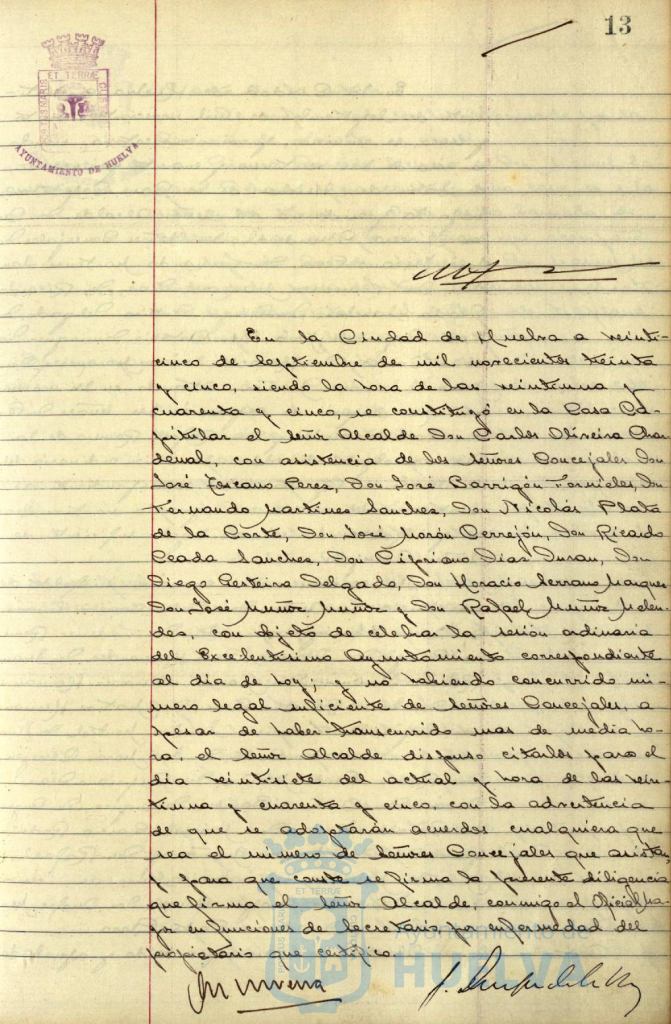 13
PORTUS MARIS ET TERRÆ CUSTODIA
AYUNTAMIENTO DE HUELVA
En la Ciudad de Huelva a veinti-
cinco de Septiembre de mil novecientos treinta
y cinco, siendo la hora de las veintinna y
cuarenta y cinco, se constituyó en la Casa Ca-
pitular el Señor Alcalde Don Carlos Oliveira Chan-
denal, con asistencia de los Señores Concejales Don
José Toscano Perez, Don José Barrigón Fornieles, Don
Fernando Martinez Sanchez, Don Nicolás Plata
de la Corte, Don José Morón Cerrejón, Don Ricardo
Ceada Sanchez, Don Cipriano Diaz Duran, Don
Diego Delgado, Don Horacio Serrano Marquez
Don José Muñoz Muñoz y Don Rafael Muñoz Melen-
dez, con objeto de celebrar la sesión ordinaria
del Excelentisimo Ayuntamiento correspondiente
al dia de hoy; y no habiendo concurrido nú-
mero legal suficiente de Señores Concejales, a
pesar de haber transcurrido mas de media ho-
ra, el Señor Alcalde dispuso citarlos para el
dia veintisiete del actual y hora de las vein-
tinna y cuarenta y cinco, con la advertencia
de que se adoptarán acuerdos cualquiera que
sea el número de Señores Concejales que asistan,
y para que conste se firma la presente diligencia
que firma el Señor Alcalde, conmigo el Oficial Ma-
yor en funciones de Secretario por enfermedad del
propietario que certifico.
Ayuntamiento de
HUELVA